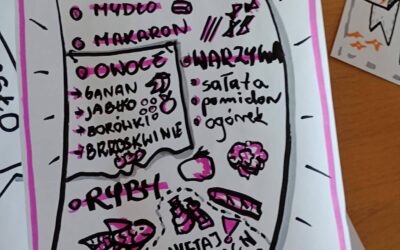 MYDŁO
MAKARON
OWOCE
BANAN
BORÓWKI
BRZOSKWINIE
WARZYWA
sałata
pomidor
ogórek
RYBY